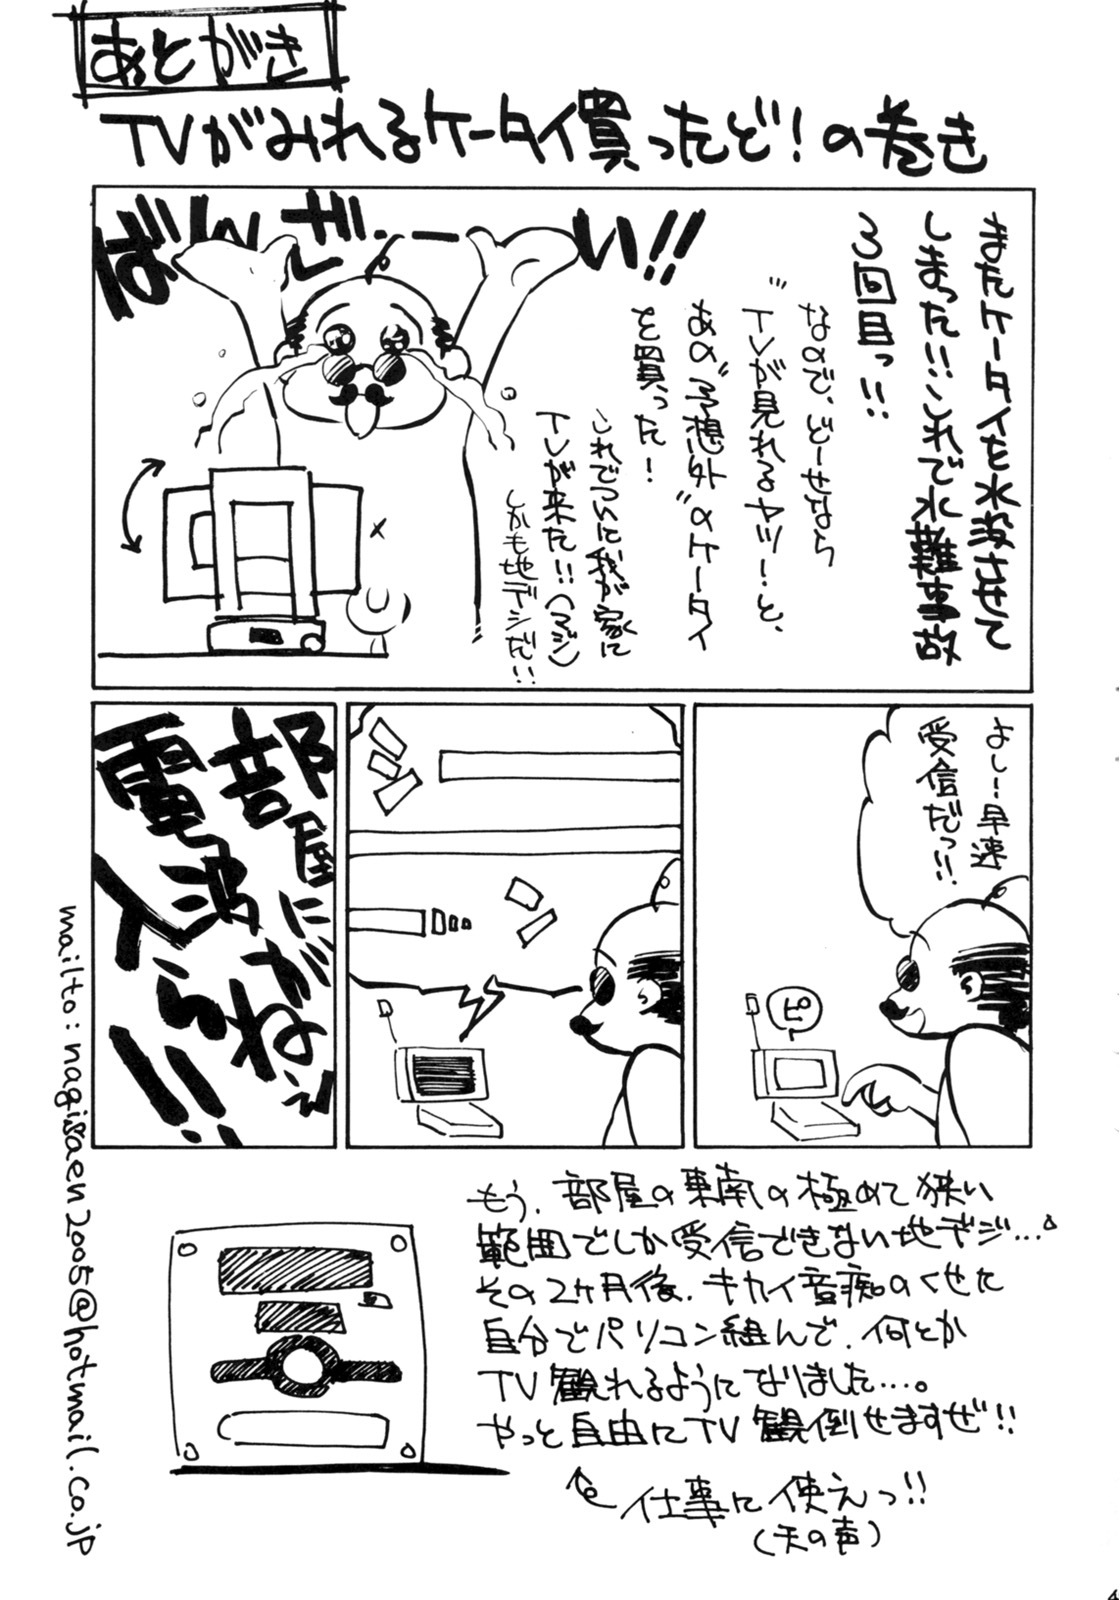 あとがき
TVがみれるケータイ買ったど！の巻き
ばんざーい!!
またケータイを水没させて
しまった!!これで水難事故
3回目っ!!
なので、どーせなら
"TVが見れるヤツ！"と、
あの"予想外"のケータイ
を買った！
これでついに我が家に
TVが来た!!（マジ）
しかも地デジだ!!
よし！早速
受信だっ!!
ピ
部屋に
電波がねぇ
入らん!!
もう、部屋の東南の極めて狭い
範囲でしか受信できない地デジ…。
その2ヶ月後、キカイ音痴のくせに
自分でパソコン組んで、何とか
TV観れるようになりました…。
やっと自由にTV観倒せますぜ!!
仕事に使えっ!!
（天の声）
mailto:nagisaen2005@hotmail.co.jp
4